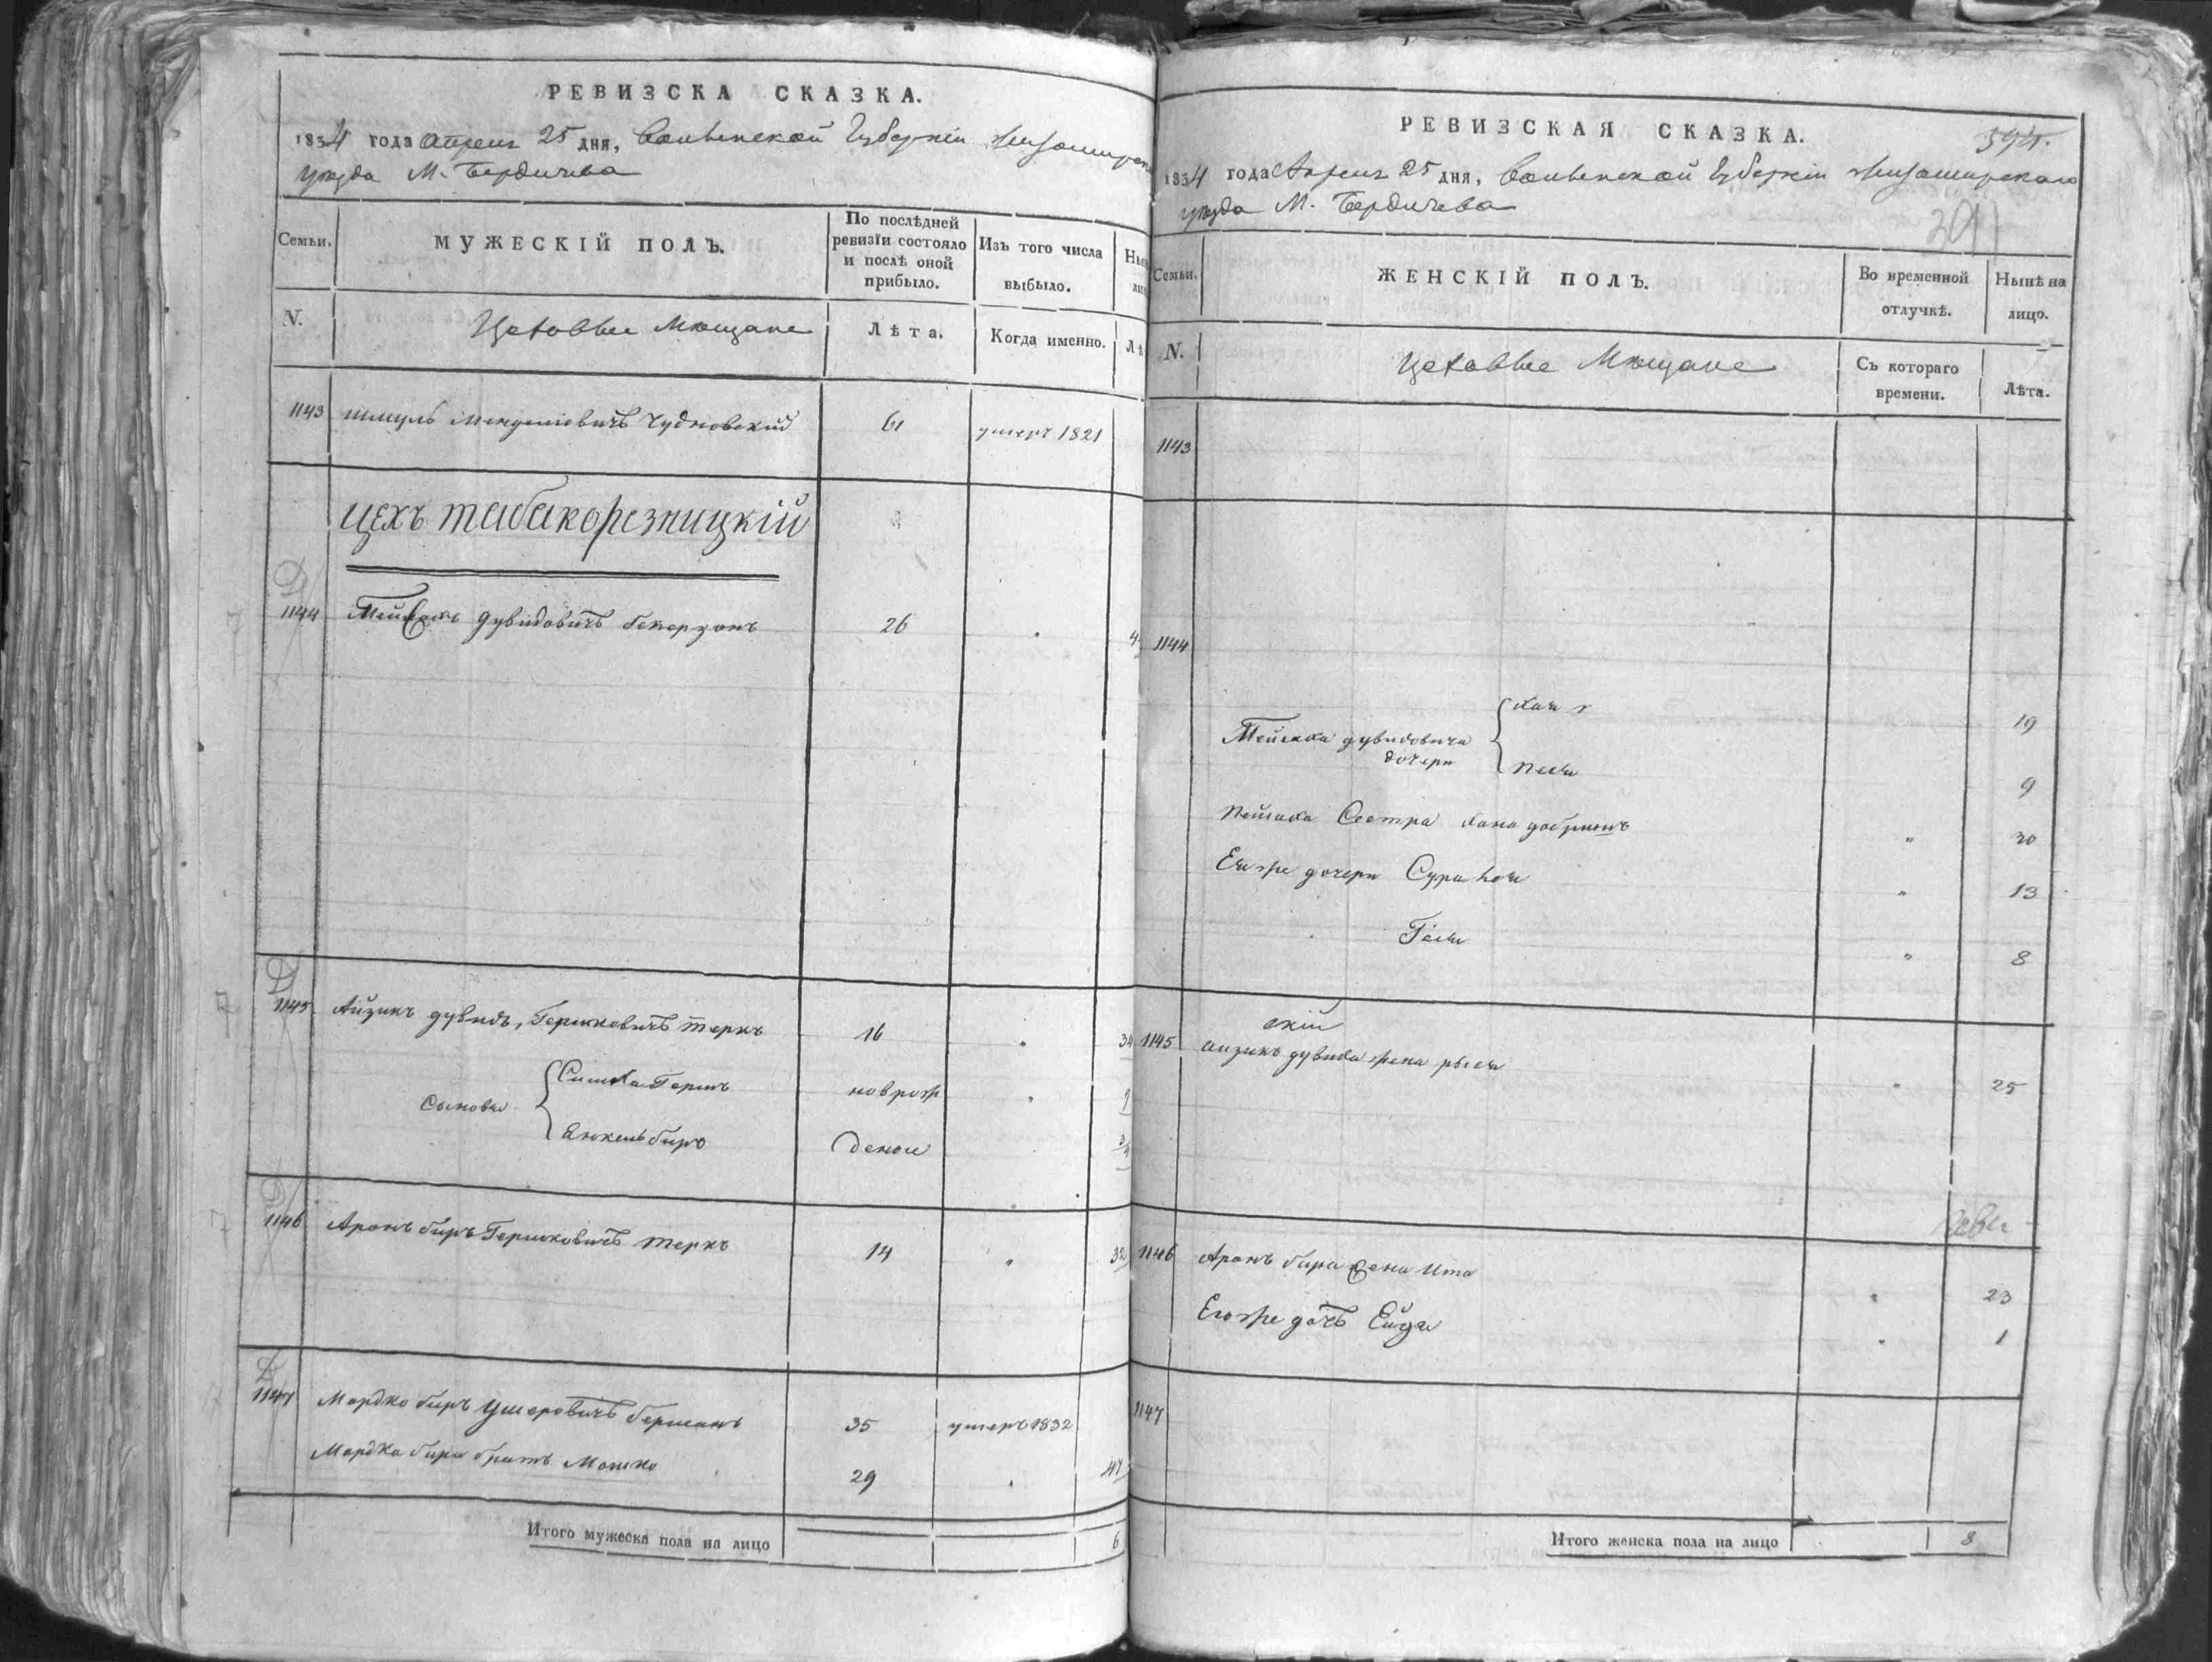 РЕВИЗСКА СКАЗКА.
1834 года апреля 25 дня, Волынской Губернии Житомирск
уезда М. Бердичева
Семьи.
МУЖЕСКІЙ ПОЛЪ.
По послѣдней
ревизіи состояло
и послѣ оной
прибыло.
Изъ того числа
выбыло.
N.
Цеховые Мещане
Лѣта.
Когда именно.
1143 Шмуль Менделіовичъ Чудновскій 61 умеръ 1821
цехъ табакорезницкій
1144 Дувидовичъ 26
1145 Айзикъ дувидъ, Гершковичъ теркъ 16 34
Сыновья
Симха Гершъ новрож
бирь денои
1146 Аронъ биръ Гершковичъ теркъ 14 32
1147 Мордко биръ Ушеровичъ Германъ 35 умеръ 1832
Мордка бира братъ Мошко 29 47
Итого мужеска пола на лицо 6
РЕВИЗСКАЯ СКАЗКА.
394.
1834 года Апреля 25 дня, Волынской Губерніи Житомирскаго
уезда М. Бердичева
Семьи.
ЖЕНСКІЙ ПОЛЪ.
Во временной
отлучкѣ.
Нынѣ на
лицо.
N.
Цеховые Мещане
Съ котораго
времени.
Лѣта.
1143
1144
Хая 19
дувидовича
дочери
Песя 9
Сестра Хана 30
Ея же дочери Сура 13
Гися 8
скій
1145 Айзикъ дувида жена рыся 25
1146 Аронъ бира жена Ита 23
Его же дочь Ейдя 1
1147
Итого женска пола на лицо 8